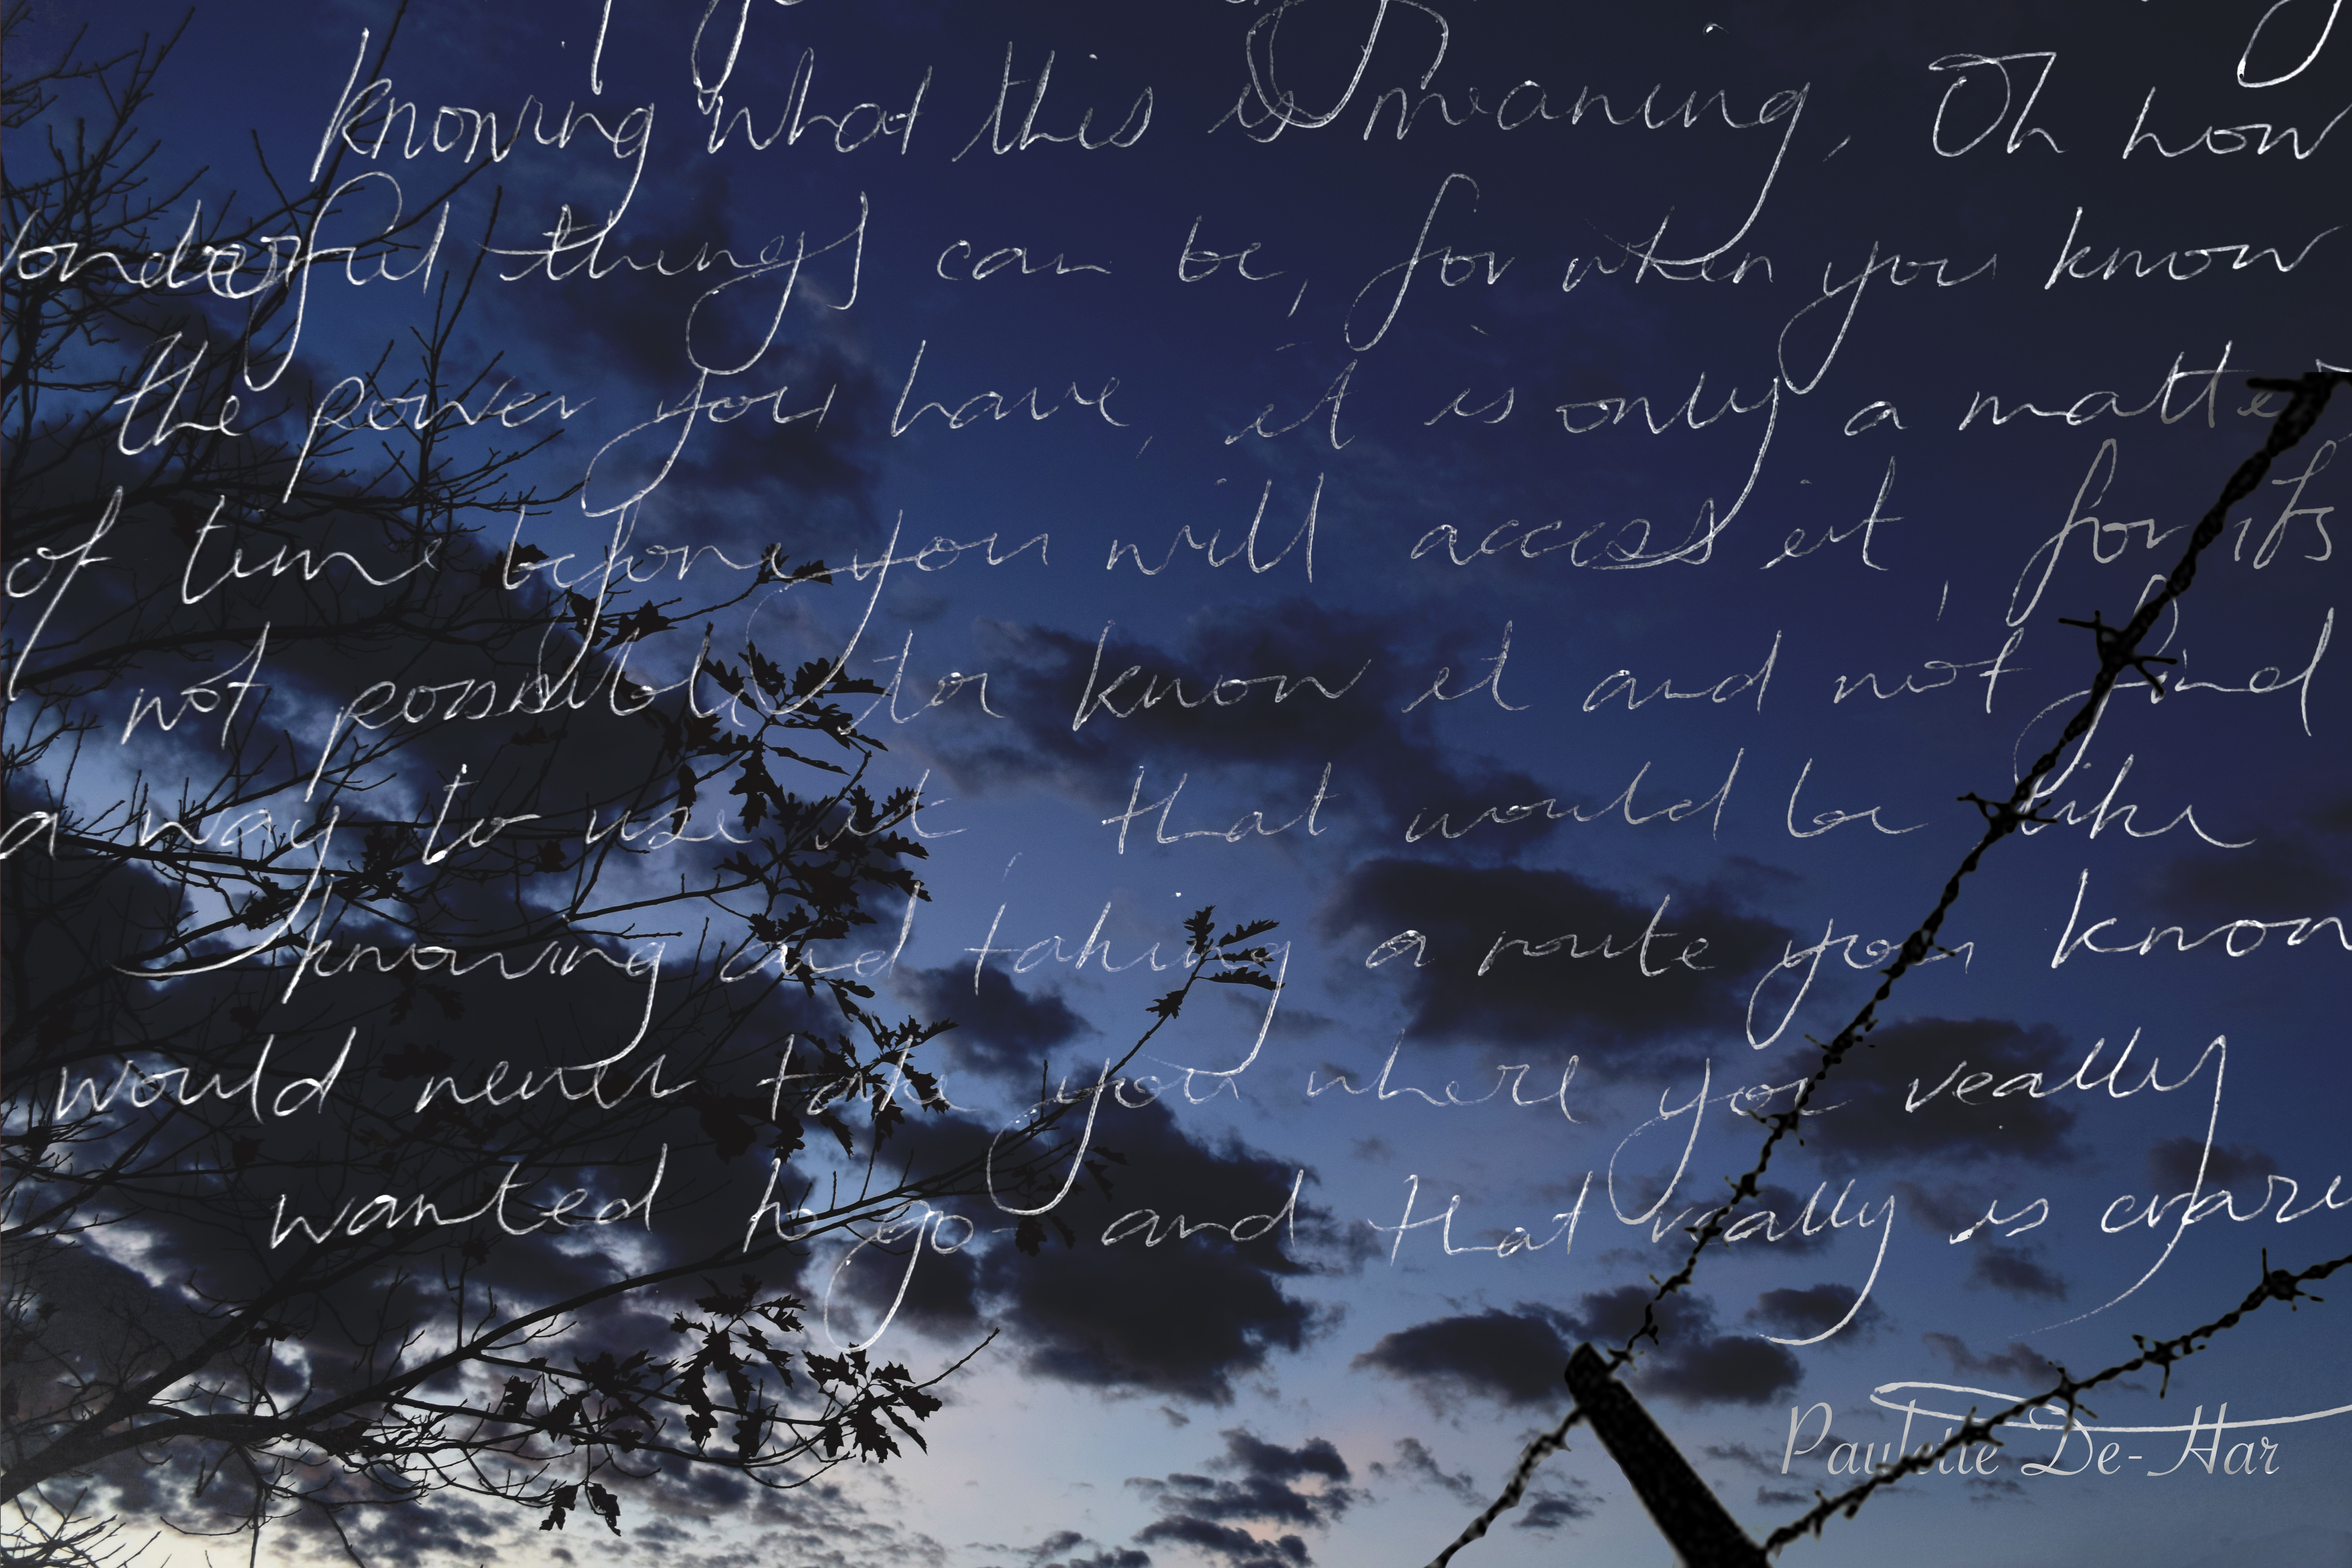 knowing what this is meaning, Oh how
wonderful things can be, for when you know
the power you have, it is only a matter
of time before you will access it, for its
not possible to know it and not find
a way to use it, that would be like
knowing and taking a route you know
would never take you where you really
wanted to go and that really is
Paulette De-Har